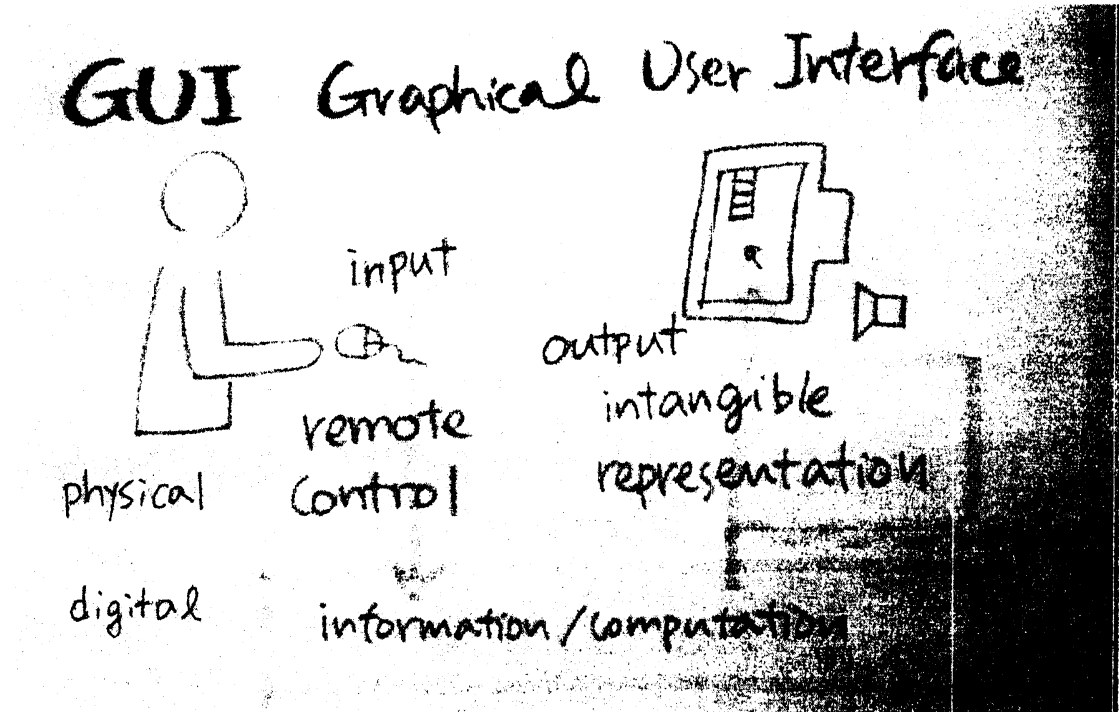 GUI Graphical User Interface
input
output
remote
control
intangible
representation
physical
digital
information/computation